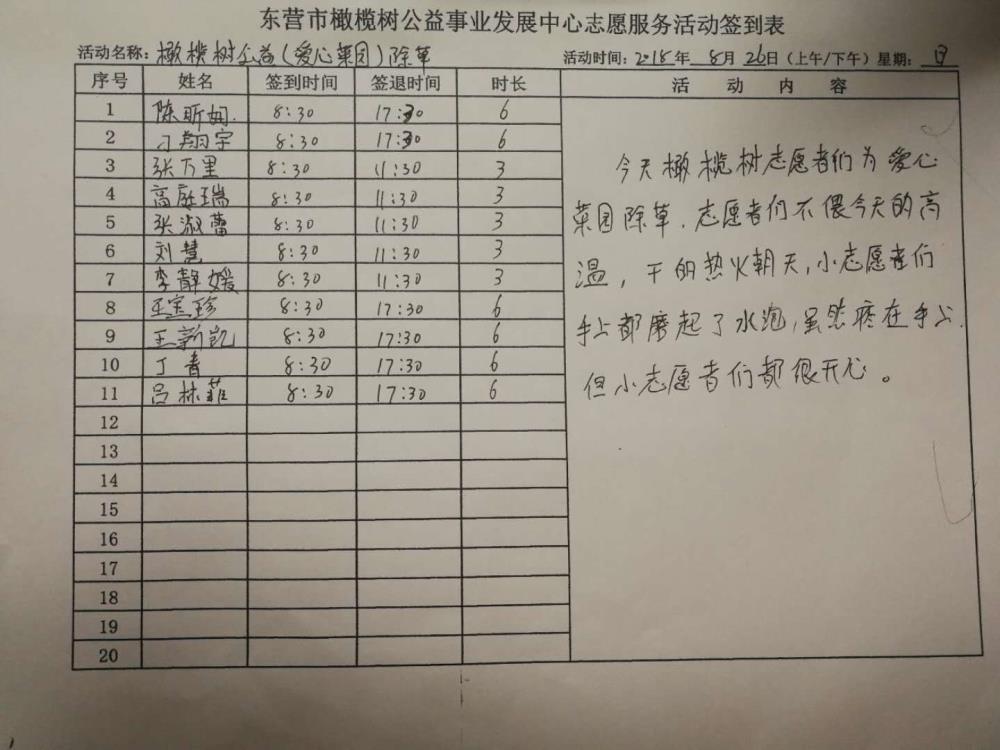 东营市橄榄树公益事业发展中心志愿服务活动签到表
活动名称：橄榄树公益(爱心菜园)除草 活动时间：2018年 8月 26日（上午/下午）星期：日
序号 姓名 签到时间 签退时间 时长 活 动 内 容
1 陈昕娴 8:30 17:30 6
2 刁翔宇 8:30 17:30 6
3 张万里 8:30 11:30 3
4 高庭瑞 8:30 11:30 3
5 张淑蕾 8:30 11:30 3
6 刘慧 8:30 11:30 3
7 李静媛 8:30 11:30 3
8 王宝珍 8:30 17:30 6
9 王新凯 8:30 17:30 6
10 丁青 8:30 17:30 6
11 吕林菲 8:30 17:30 6
12
13
14
15
16
17
18
19
20
今天橄榄树志愿者们为爱心
菜园除草.志愿者们不偎今天的高
温，干的热火朝天,小志愿者们
手上都磨起了水泡,虽然疼在手上.
但小志愿者们都很开心。